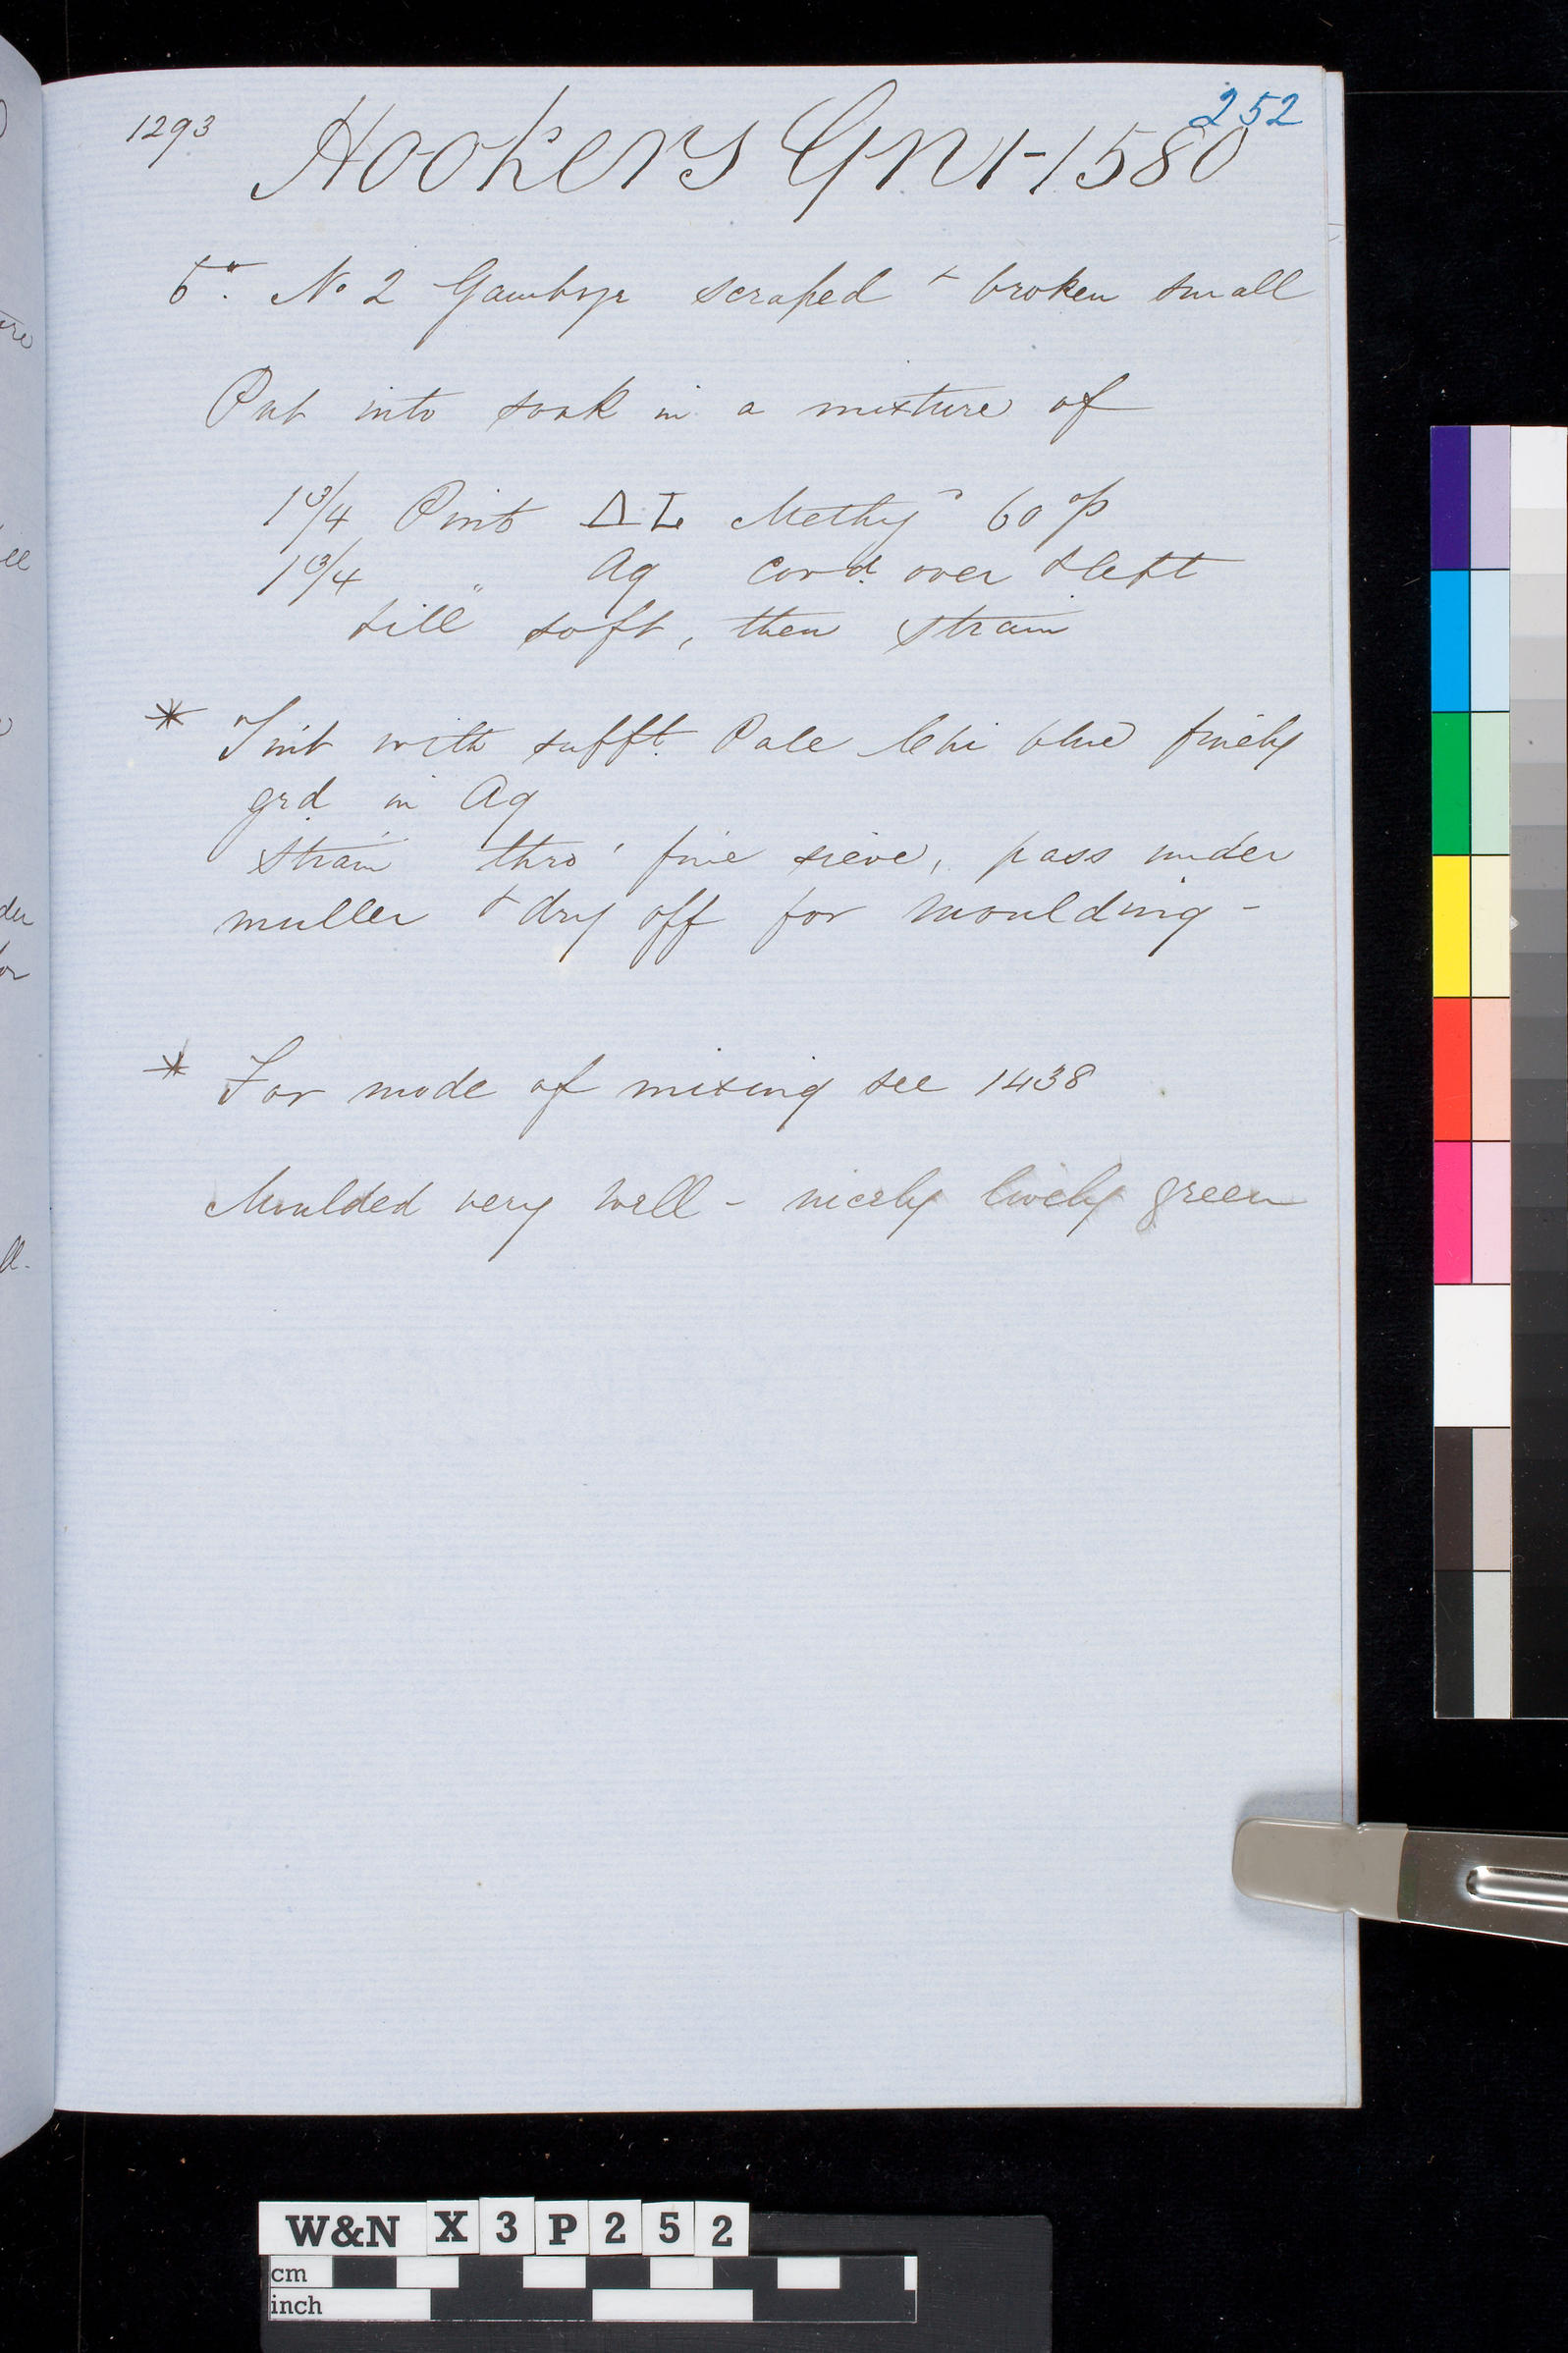 252
1293 Hookers Gn 1-1580
6". No 2 Gambyr scraped + broken small
Put into soak in a mixture of
1 3/4 Pint Methy 60 op
1 3/4 " Aq Cov'd. over & left
till soft, then strain
* Tint with sufft. Pale Chi blue finely
grd in Aq
Strain thro' fine sieve, pass under
muller & dry off for moulding -
* For mode of mixing see 1438
Moulded very well - nicely lively green
W&N X3P252
cm
inch